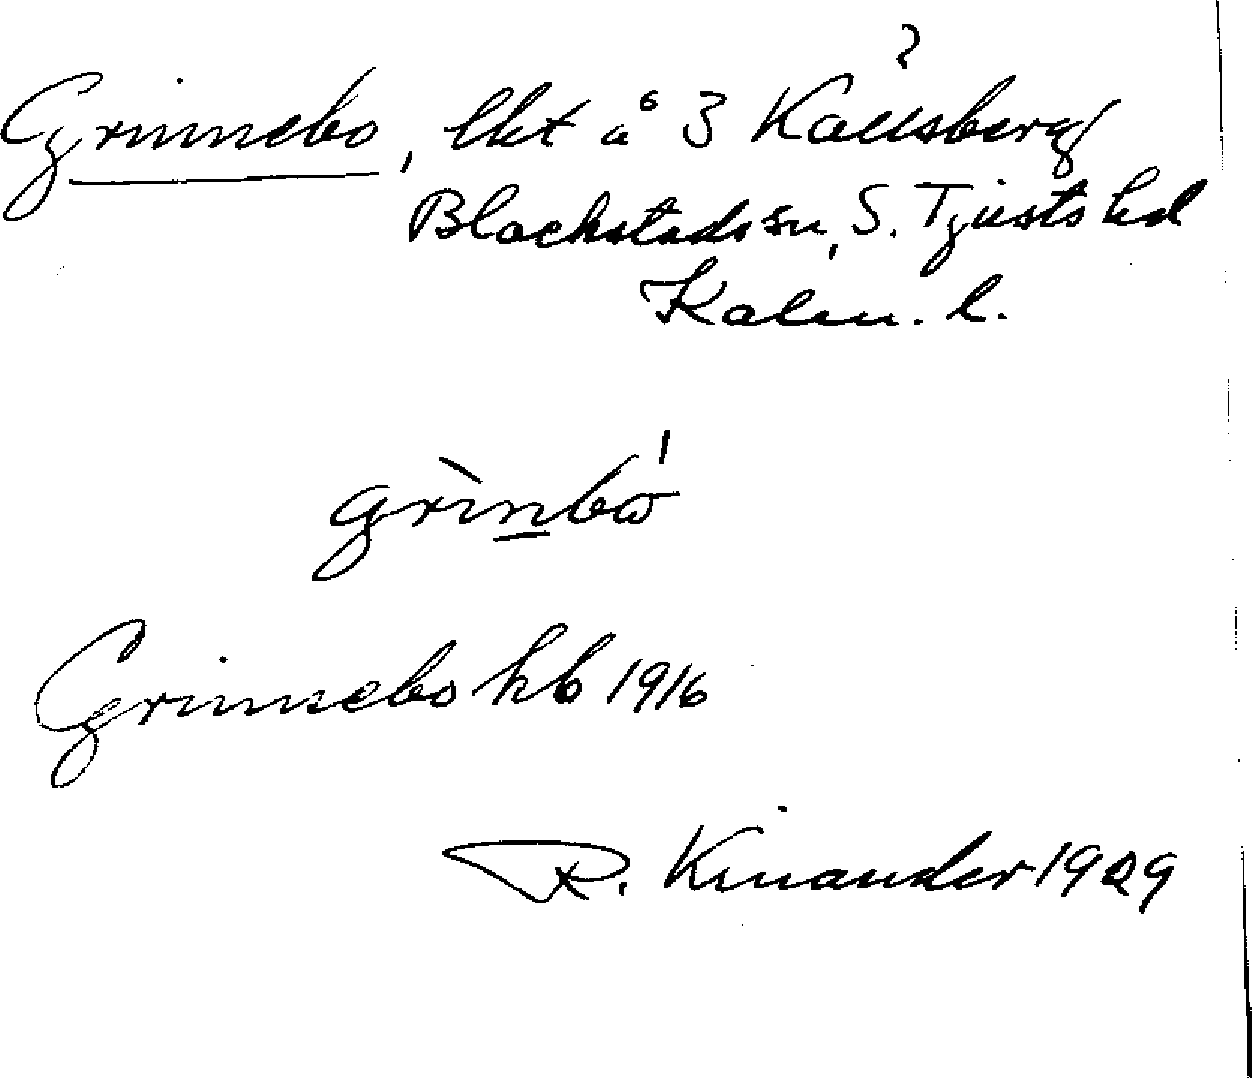 ?
Grinnebo, lht å 3 Källsberg
Blackstads sn, S. Tjusts hd
Kalm. l.
grìnbω̄́
Grinnebo kb 1916
R. Kinander 1929